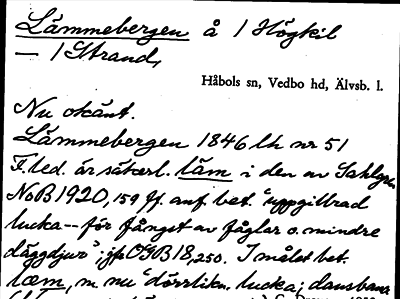 Lämmebergen å 1 Högkil
— 1 Strand,
Håbols sn, Vedbo hd, Älvsb. l.
Nu okänt.
Lämmebergen 1846 lh nr 51
F.led. är säkerl. läm i den av Sahlgren
NoB 1920, 159 ff. anf. bet. "uppgillrad
lucka -- för fångst av fåglar o. mindre
däggdjur"; jfr OGB 18, 250. I målet bet.
læm, m. nu "dörrlikn. lucka;